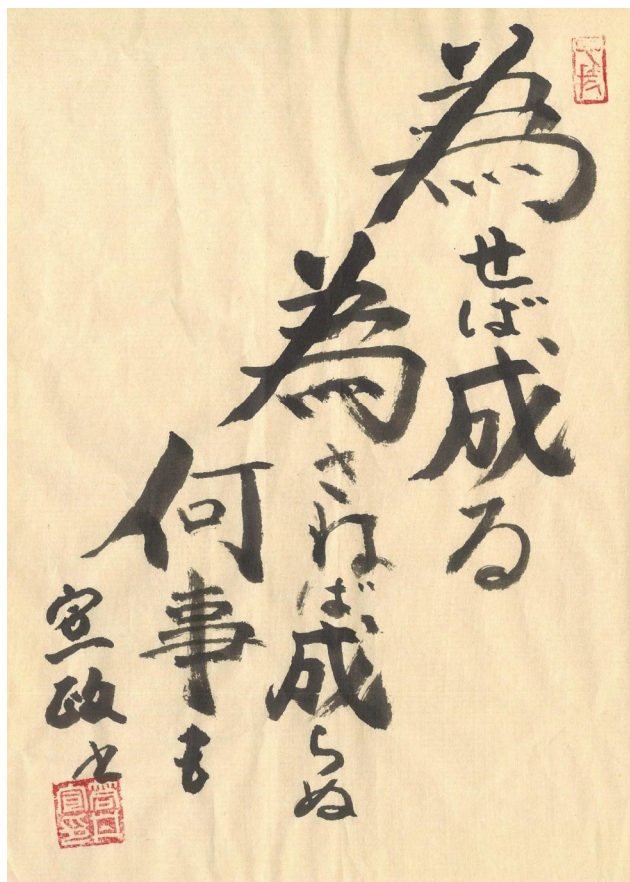 為せば成る
為さねば成らぬ
何事も
宣政書